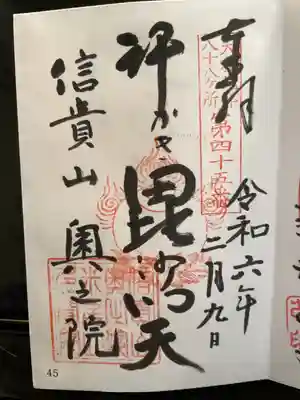 奉拝
八十八ヶ所
第四十五番
令和六年二月九日
汗かき毘沙門天
信貴山奥之院
45